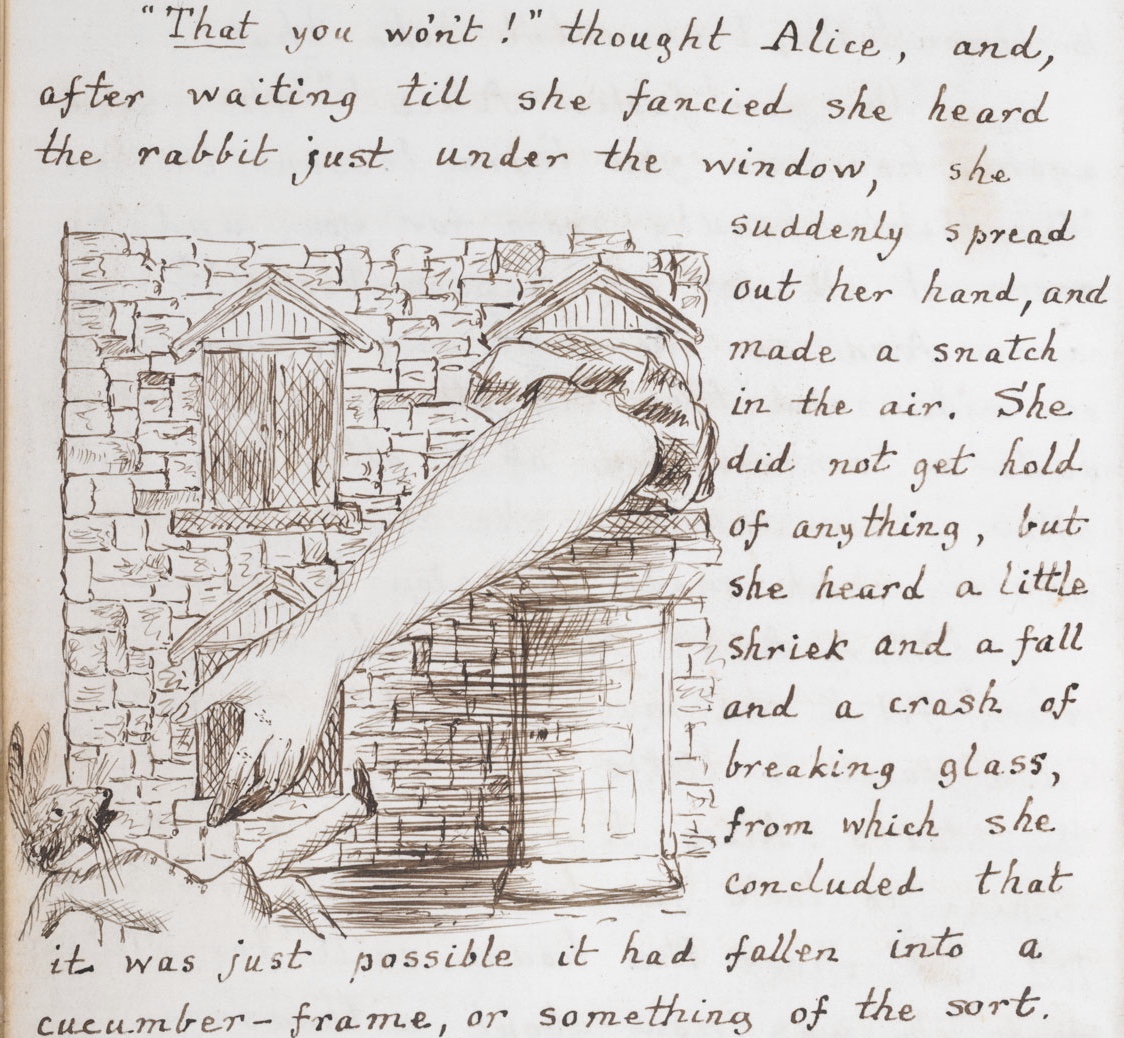 "That you wo'n't!" thought Alice, and,
after waiting till she fancied she heard
the rabbit just under the window, she
suddenly spread
out her hand, and
made a snatch
in the air. She
did not get hold
of anything, but
she heard a little
shriek and a fall
and a crash of
breaking glass,
from which she
concluded that
it was just possible it had fallen into a
cucumber-frame, or something of the sort.